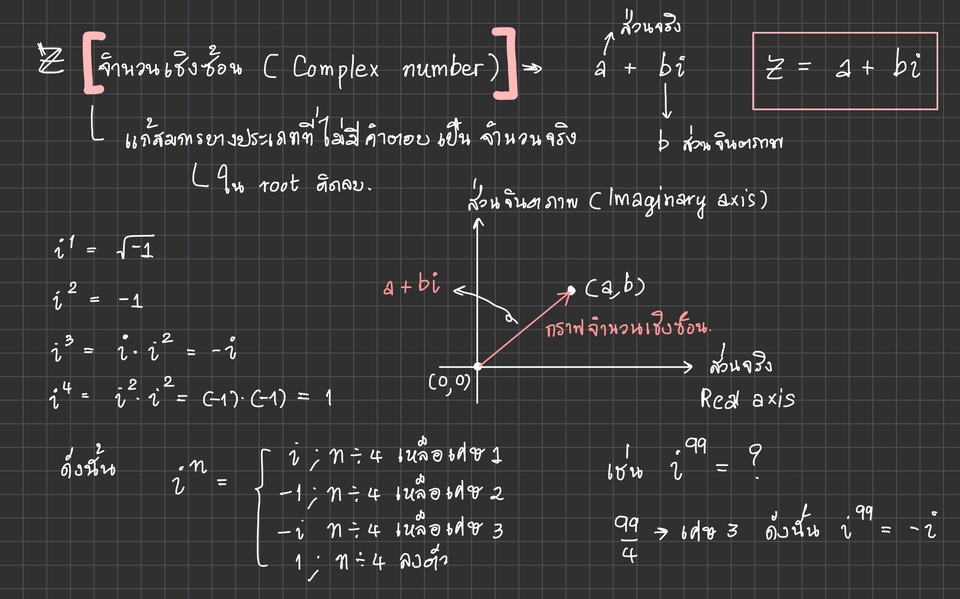 ส่วนจริง
Z [จำนวนเชิงซ้อน (Complex number)] → a + bi
z = a + bi
b ส่วนจินตภาพ
แก้สมการบางประเภทที่ไม่มีคำตอบเป็นจำนวนจริง
ใน root ติดลบ.
ส่วนจินตภาพ (Imaginary axis)
i¹ = √-1
i² = -1
i³ = i · i² = -i
i⁴ = i² · i² = (-1)·(-1) = 1
a + bi
(a,b)
กราฟจำนวนเชิงซ้อน.
(0,0)
ส่วนจริง
Real axis
ดังนั้น iⁿ =
i ; n ÷ 4 เหลือเศษ 1
-1 ; n ÷ 4 เหลือเศษ 2
-i n ÷ 4 เหลือเศษ 3
1 ; n ÷ 4 ลงตัว
เช่น i⁹⁹ = ?
99/4 → เศษ 3 ดังนั้น i⁹⁹ = -i